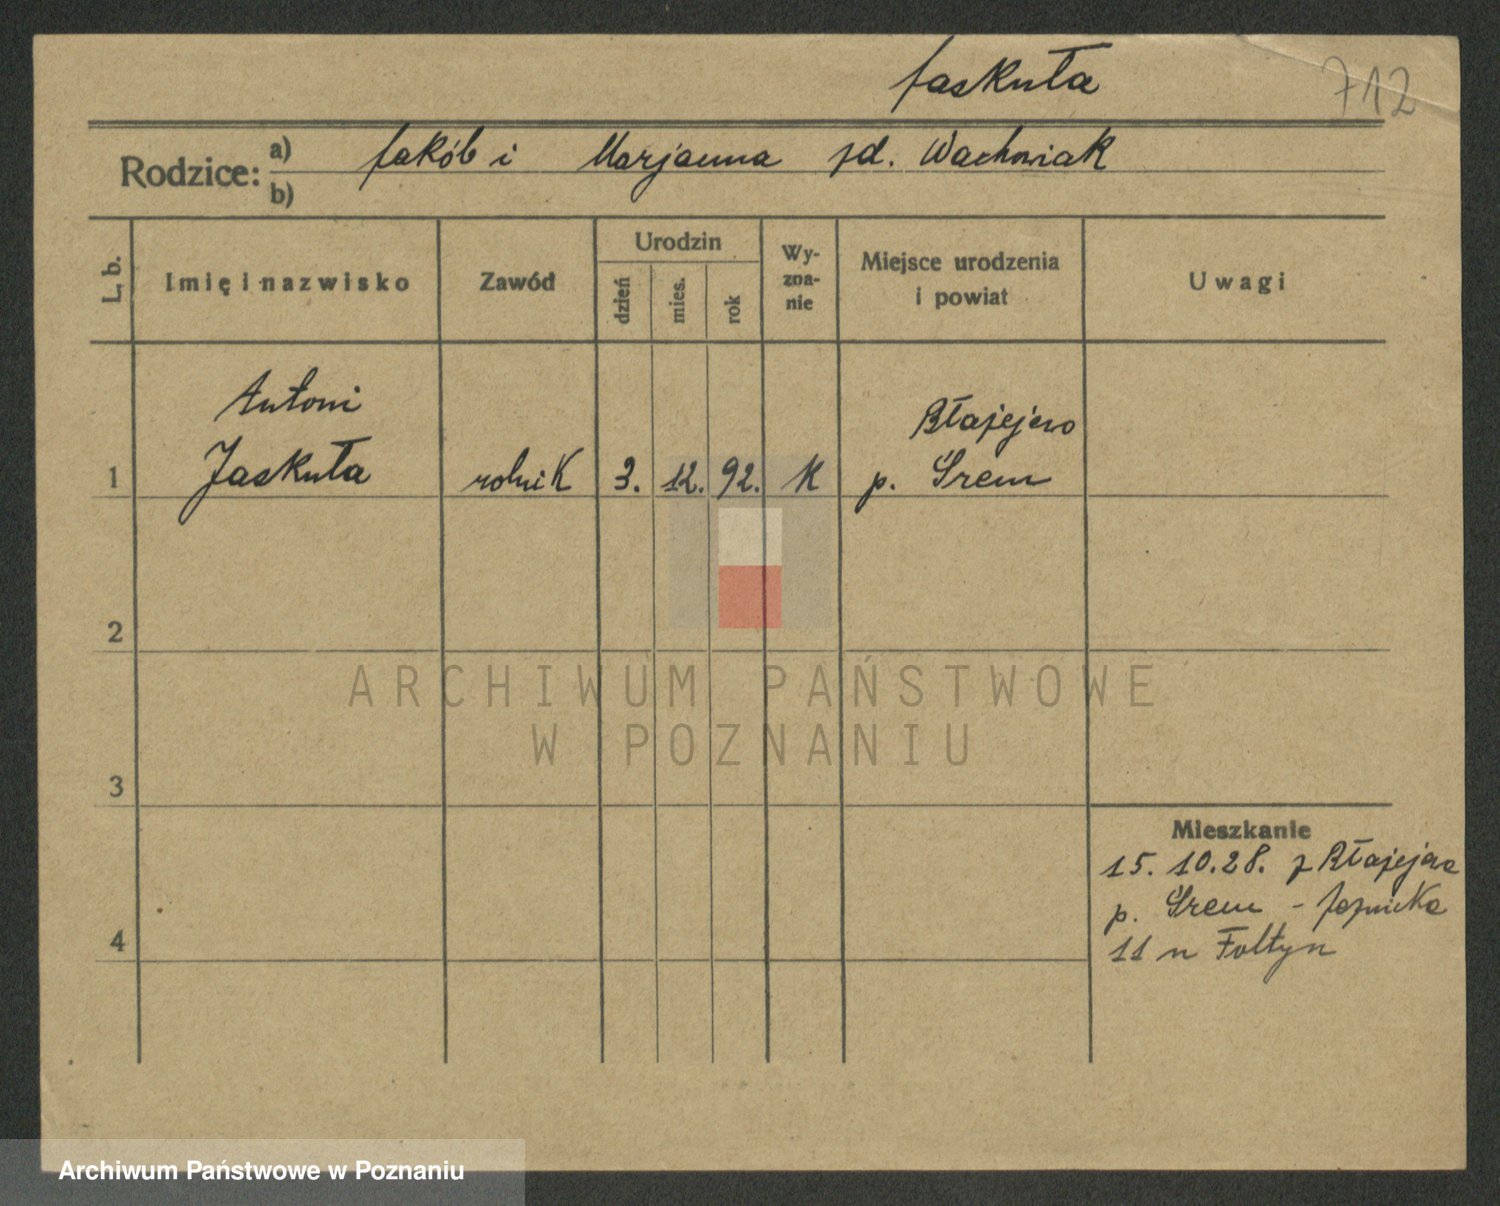 Jaskuła
712
Rodzice: a) Jakób i Marjanna zd. Wachowiak
b)
L. b.
Imię i nazwisko
Zawód
Urodzin
dzień
mies.
rok
Wy-
zna-
nie
Miejsce urodzenia
i powiat
Uwagi
Antoni
Błażejewo
1 Jaskuła rolnik 3. 12. 92. K p. Śrem
2
3
4
Mieszkanie
15. 10. 28. z Błażejewa
p. Śrem -
11 u Fołtyn
ARCHIWUM PAŃSTWOWE
W POZNANIU
Archiwum Państwowe w Poznaniu